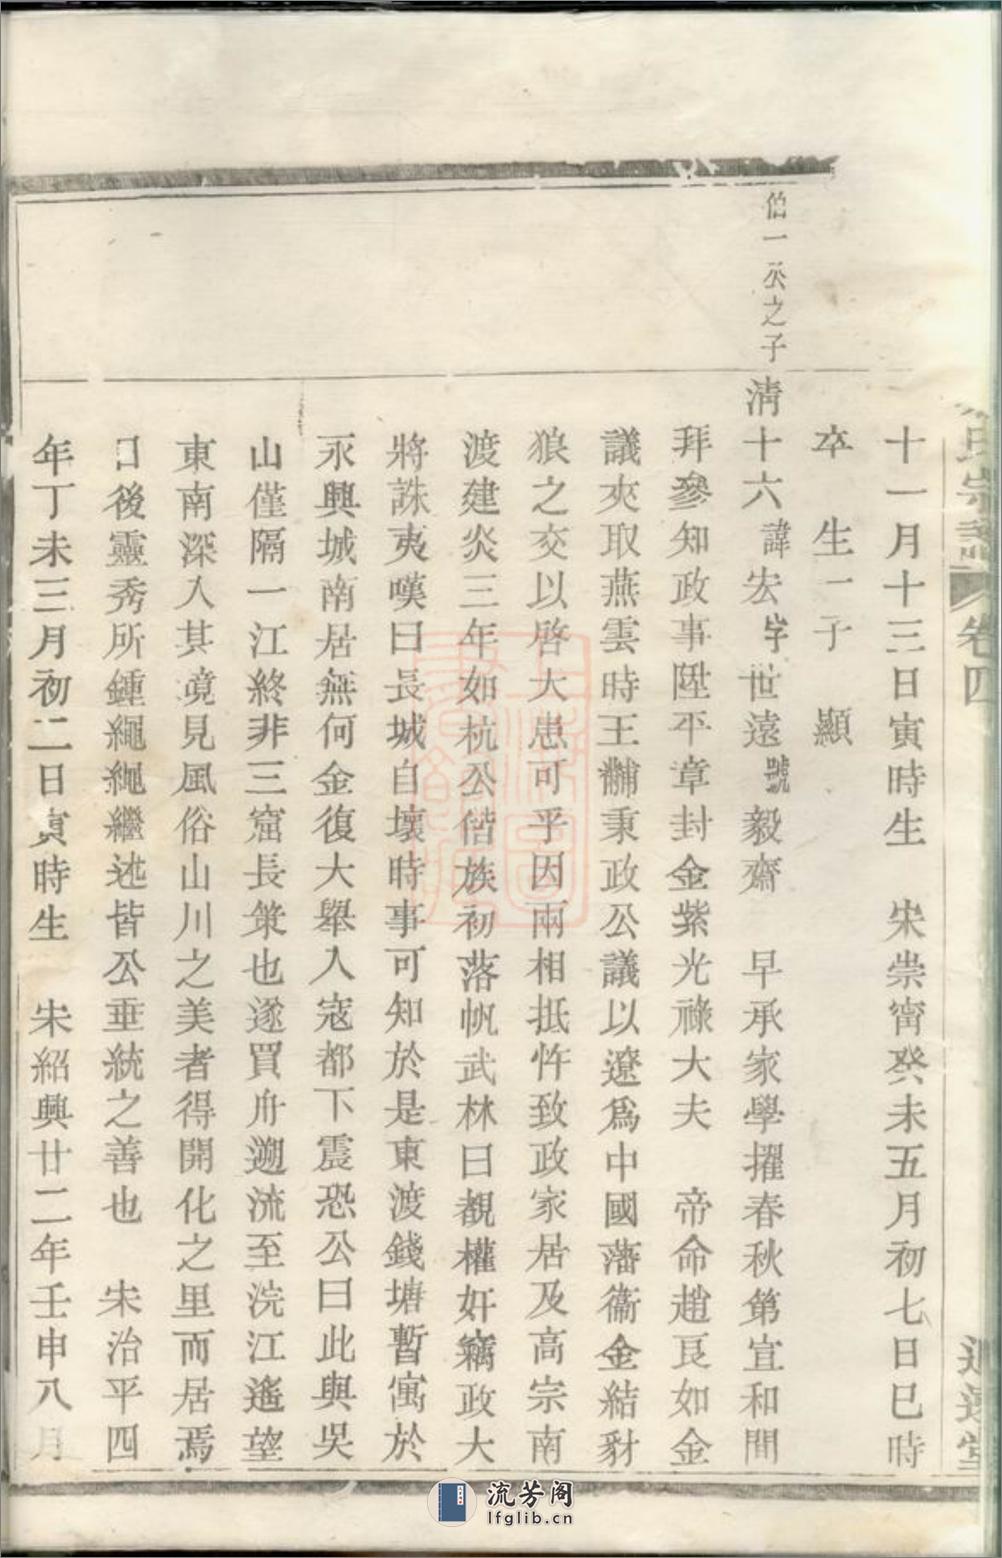 氏宗譜 卷四 追遠堂
十一月十三日寅時生 宋崇甯癸未五月初七日巳時
卒 生一子 顯
伯一永之子
淸十六諱宏字世遠號毅齋 早承家學擢春秋第宣和間
拜參知政事陞平章封金紫光祿大夫 帝命趙良如金
議夾取燕雲時王黼秉政公議以遼爲中國藩衞金結豺
狼之交以啓大患可乎因兩相抵忤致政家居及高宗南
渡建炎三年如杭公偕族初落帆武林曰覩權奸竊政大
將誅夷嘆曰長城自壞時事可知於是東渡錢塘暫寓於
永興城南居無何金復大舉入寇都下震恐公曰此與吳
山僅隔一江終非三窟長策也遂買舟遡流至浣江遙望
東南深入其境見風俗山川之美者得開化之里而居焉
日後靈秀所鍾繩繩繼述皆公垂統之善也 宋治平四
年丁未三月初二日寅時生 宋紹興廿二年壬申八月
流芳阁
lfglib.cn